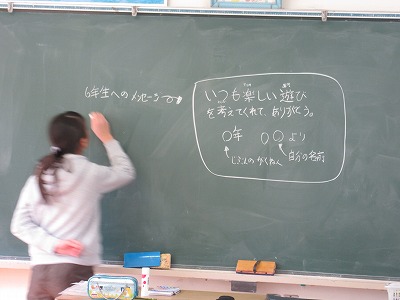 6年生へのメッセージ
いつも楽しい遊び
を考えてくれて、ありがとう。
○年 ○○より
じぶんのがくねん 自分の名前